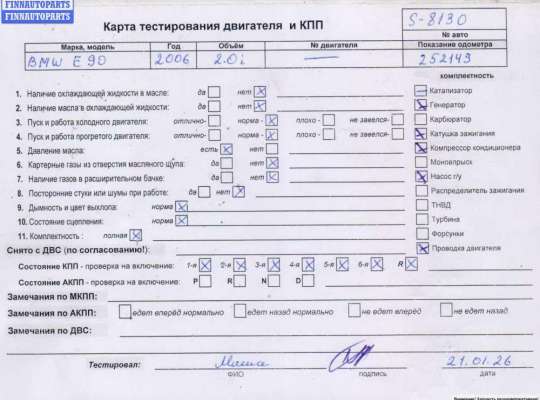 FINNAUTOPARTS
FINNAUTOPARTS
Карта тестирования двигателя и КПП
S-8130
№ авто
Марка, модель Год Объём № двигателя Показание одометра
BMW E90 2006 2.0i — 252149
комплектность
1. Наличие охлаждающей жидкости в масле: да нет Катализатор
2. Наличие масла в охлаждающей жидкости: да нет Генератор
3. Пуск и работа холодного двигателя: отлично- норма - плохо - не завелся- Карбюратор
4. Пуск и работа прогретого двигателя: отлично- норма - плохо - не завелся- Катушка зажигания
5. Давление масла: есть нет Компрессор кондиционера
6. Картерные газы из отверстия масляного щупа: да нет Моновпрыск
7. Наличие газов в расширительном бачке: да нет Насос г/у
8. Посторонние стуки или шумы при работе: да нет Распределитель зажигания
9. Дымность и цвет выхлопа: норма ТНВД
10. Состояние сцепления: норма Турбина
11. Комплектность : полная Форсунки
Снято с ДВС (по согласованию!): Проводка двигателя
Состояние КПП - проверка на включение: 1-я 2-я 3-я 4-я 5-я 6-я R
Состояние АКПП - проверка на включение: P R N D
Замечания по МКПП:
Замечания по АКПП: едет вперёд нормально едет назад нормально не едет вперёд не едет назад
Замечания по ДВС:
Тестировал: 21.01.26
ФИО подпись дата